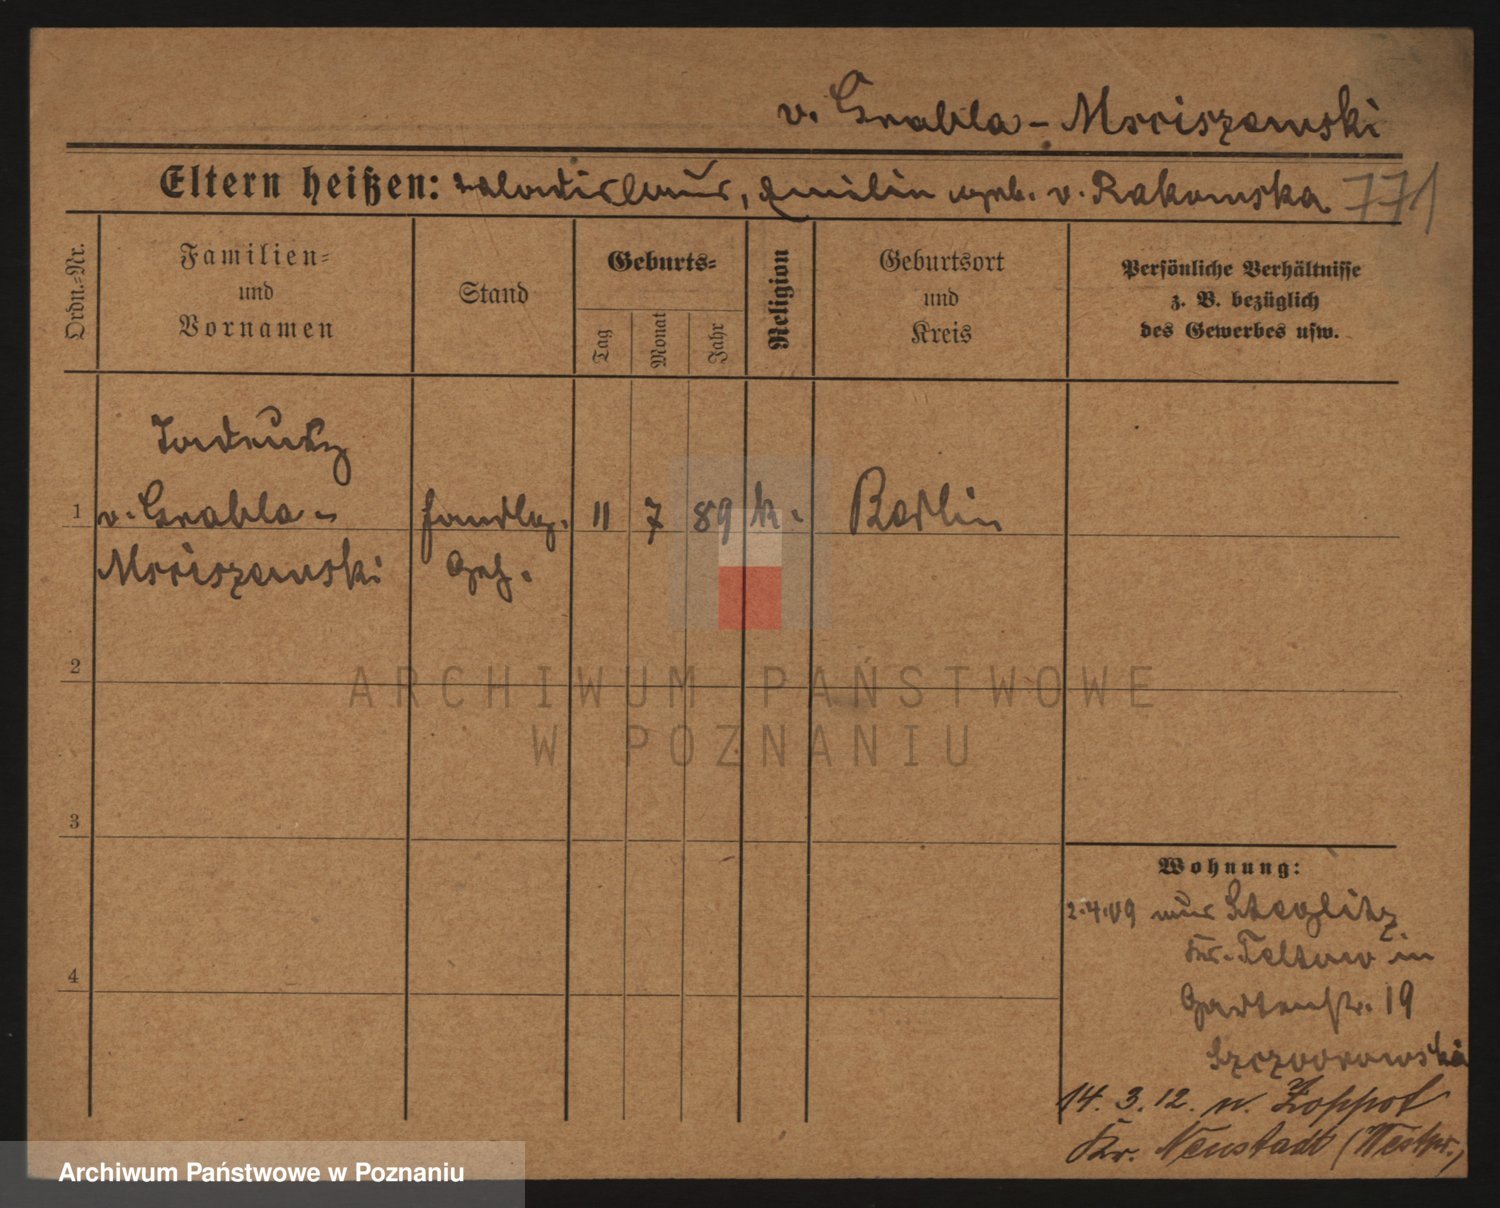 v. Grabla - Mrciszewski
Eltern heißen: Wladislaus, Emilia geb. v. Rakowska 771
Ordn.-Nr.
Familien-
und
Vornamen
Stand
Geburts-
Tag
Monat
Jahr
Religion
Geburtsort
und
Kreis
Persönliche Verhältnisse
z. B. bezüglich
des Gewerbes usw.
Tadeusz
1 v. Grabla - Handlg. 11 7 89 k. Berlin
Mrciszewski Geh.
2
ARCHIWUM PAŃSTWOWE
W POZNANIU
3
4
Wohnung:
2.4.09 nur Steglitz
Kr. Teltow in
Gartenstr. 19
14. 3. 12. n. Zoppot
Kr. Neustadt (Westpr.)
Archiwum Państwowe w Poznaniu